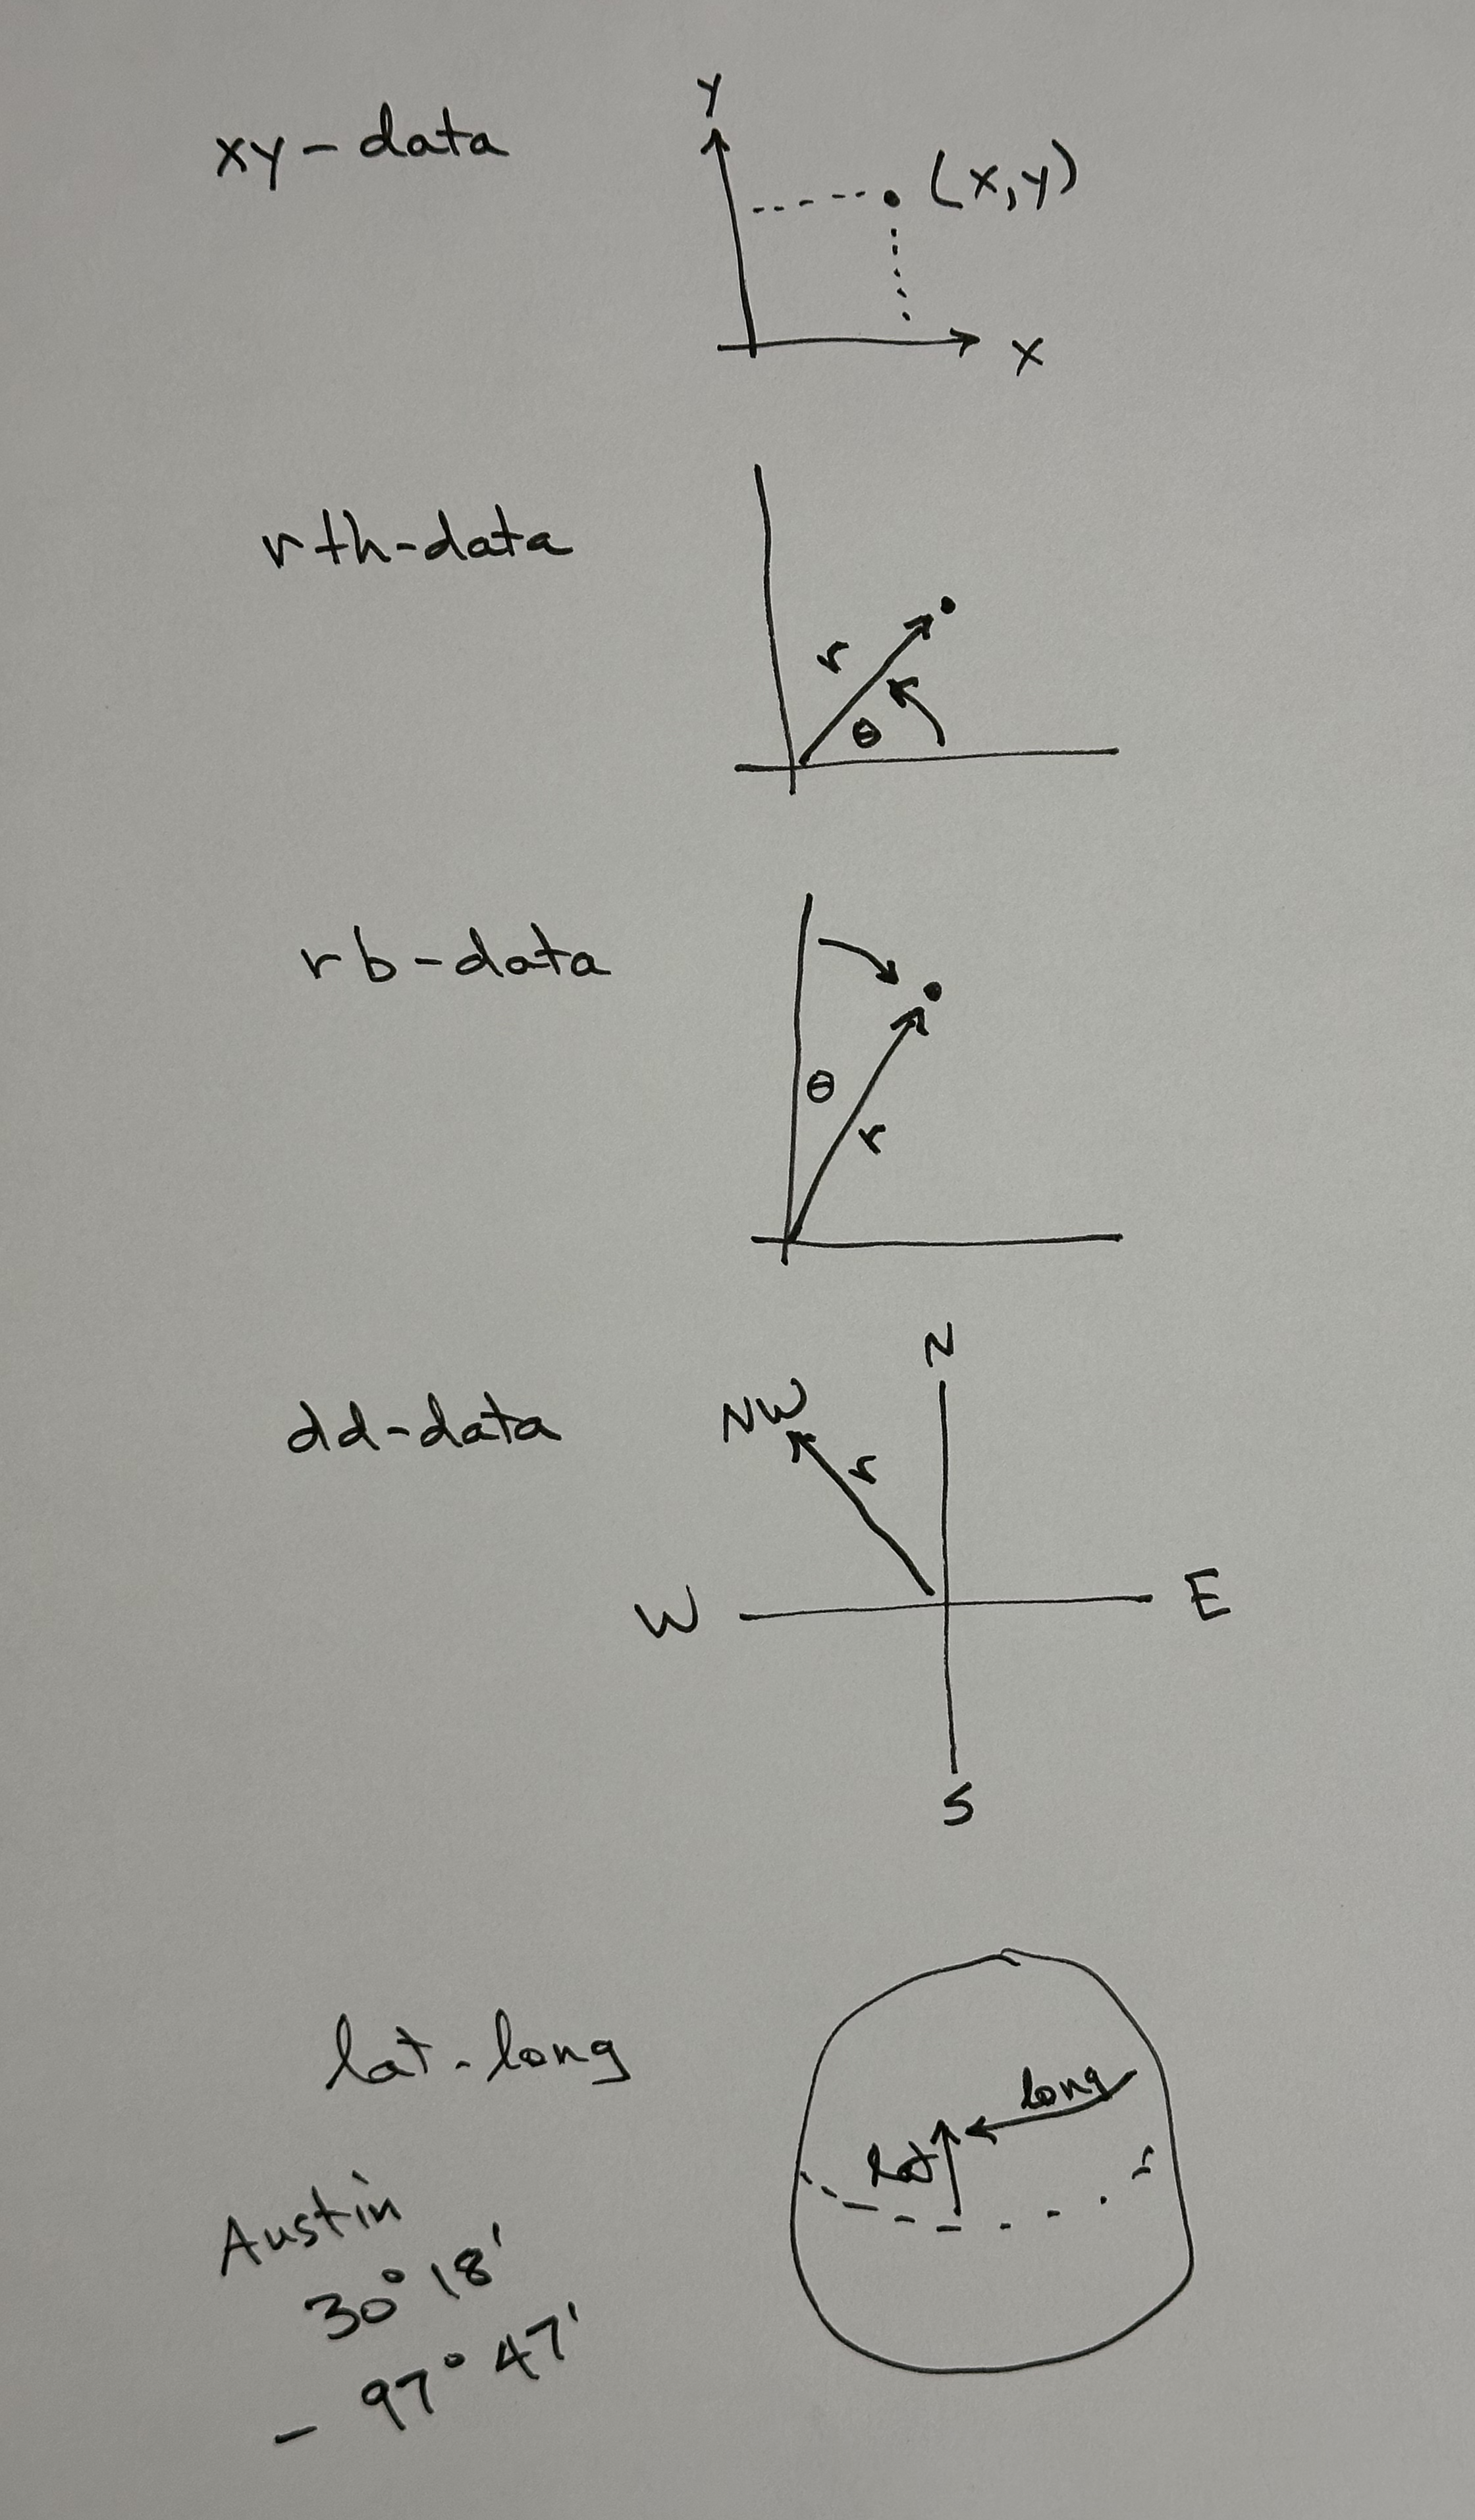 xy-data
Y
(x,y)
X
rth-data
r
θ
rb-data
θ
r
dd-data
N
NW
r
W
E
S
lat-long
long
lat
Austin
30° 18'
- 97° 47'